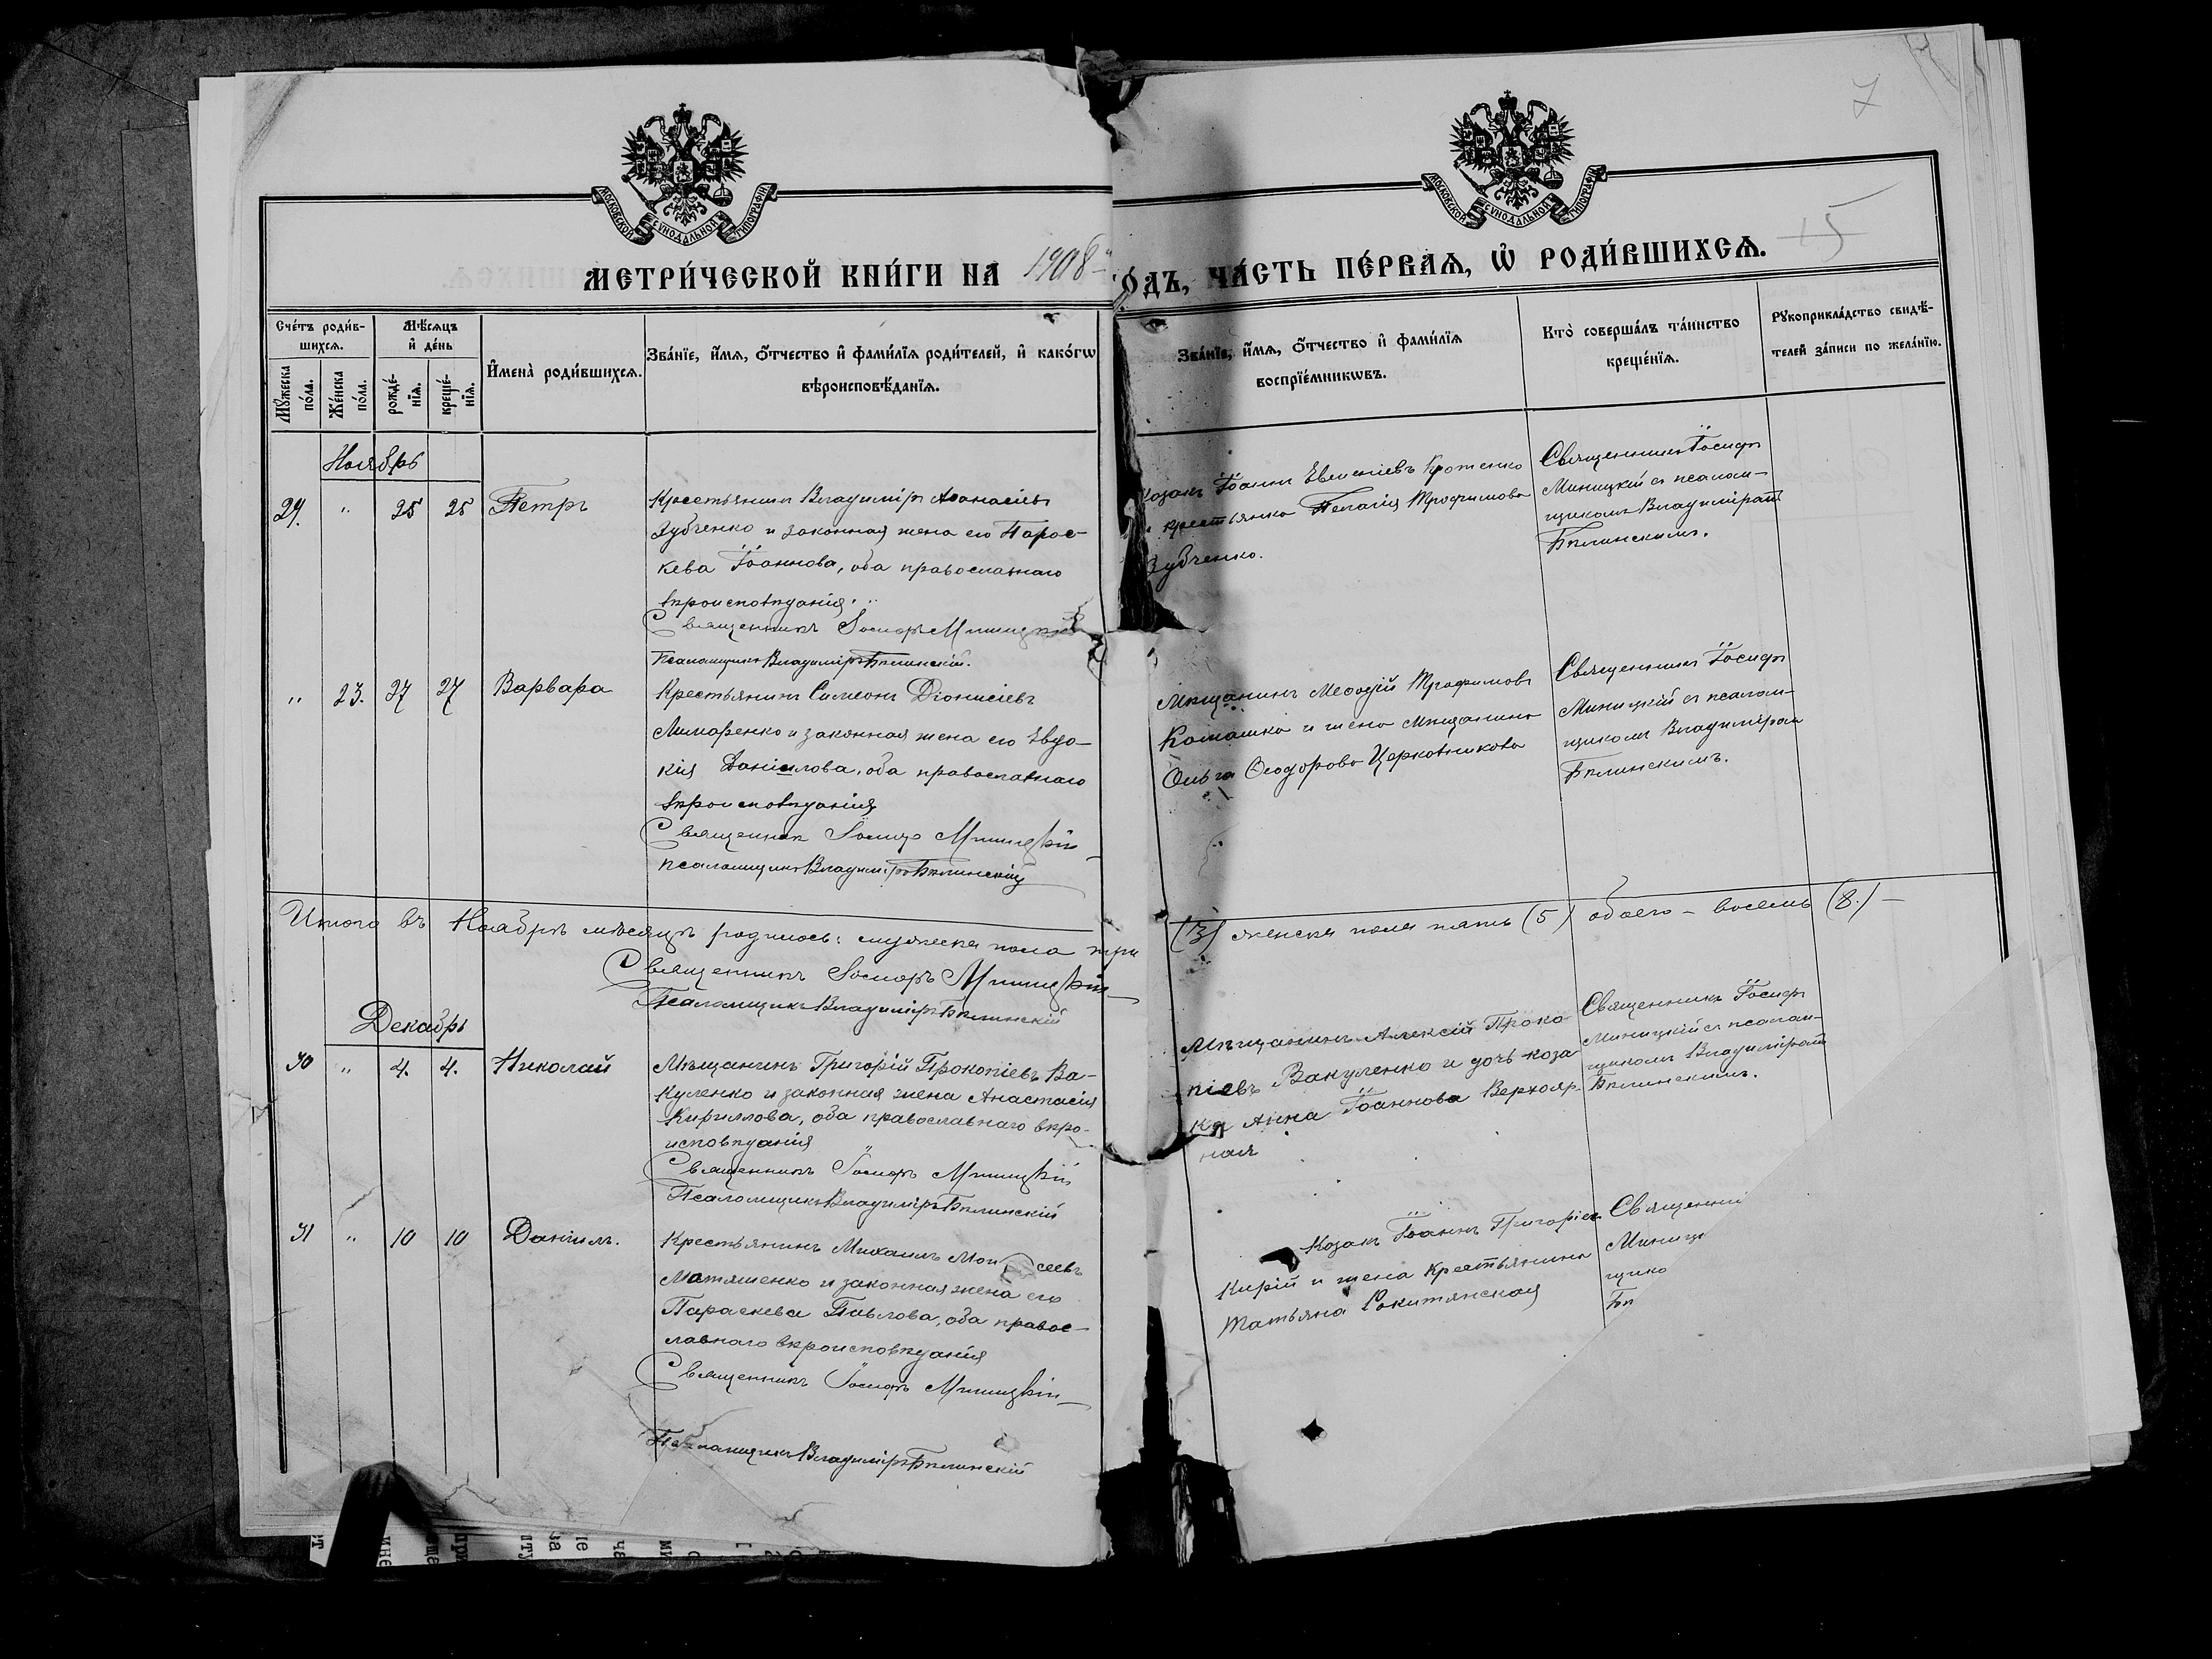 7
МОСКОВСКОЙ СУНОДАЛЬНОЙ ТИПОГРАФІИ
МОСКОВСКОЙ СУНОДАЛЬНОЙ ТИПОГРАФІИ
МЕТРИ́ЧЕСКОЙ КНИ́ГИ НА 1908 ГО́ДЪ, ЧА́СТЬ ПЕ́РВАѦ, Ѡ҆ РОДИ́ВШИХСѦ. 15
Сче́тъ роди́в-
шихсѧ.
Мꙋ́жеска по́ла.
Же́нска по́ла.
Мѣ́сѧцъ
и҆ де́нь
рожде́-
нїѧ.
креще́-
нїѧ.
И҆мена̀ роди́вшихсѧ.
Зва́нїе, и҆́мѧ, ѻ҆́тчество и҆ фами́лїѧ роди́телей, и҆ како́гѡ
вѣроисповѣ́данїѧ.
Зва́нїе, и҆́мѧ, ѻ҆́тчество и҆ фами́лїѧ
воспрїе́мникѡвъ.
Кто̀ соверша́лъ та́инство
креще́нїѧ.
Рꙋкоприкла́дство свидѣ́-
телей за́писи по жела́нїю.
Ноябрь
29. " 25 25 Петръ
Крестьянинъ Владиміръ Аѳанасіевъ
Зубченко и законная жена его Парас-
кева Іоаннова, оба православнаго
вѣроисповѣданія.
Священникъ Іосифъ Миницкій
Псаломщикъ Владиміръ Бѣлинскій.
Козакъ Іоаннъ Евменіевъ Кротенко
и крестьянка Пелагія Трофимова
Зубченко.
Священникъ Іосифъ
Миницкій съ псалом-
щикомъ Владиміромъ
Бѣлинскимъ.
" 23. 27 27 Варвара
Крестьянинъ Симеонъ Діонисіевъ
Лимаренко и законная жена его Евдо-
кія Даніилова, оба православнаго
вѣроисповѣданія
Священник Іосифъ Миницкій
псаломщикъ Владиміръ Бѣлинскій
Мѣщанинъ Меѳодій Трофимовъ
Ромашко и жена мѣщанина
Ольга Ѳеодорова Церковникова
Священникъ Іосифъ
Миницкій съ псалом-
щикомъ Владиміромъ
Бѣлинскимъ.
Итого въ Ноябрѣ мѣсяцѣ родилось: мужеска пола три (3) женска пола пять (5) обоего – восемь (8.) –
Священникъ Іосифъ Миницкій
Псаломщикъ Владиміръ Бѣлинскій
Декабрь
30 " 4. 4. Николай
Мѣщанинъ Григорій Прокопіевъ Ва-
куленко и законная жена Анастасія
Кириллова, оба православнаго вѣро-
исповѣданія
Священникъ Іосифъ Миницкій
Псаломщикъ Владиміръ Бѣлинскій
Мѣщанинъ Алексій Проко
піевъ Вакуленко и дочь коза
ка Анна Іоаннова Верхояр-
ная
Священникъ Іосифъ
Миницкій съ псалом-
щикомъ Владиміромъ
Бѣлинскимъ.
31 " 10 10 Даніилъ.
Крестьянинъ Михаилъ Мои сеевъ
Матяшенко и законная жена его
Параскева Павлова, оба правос-
лавнаго вѣроисповѣданія
Священникъ Іосифъ Миницкій
Псаломщикъ Владиміръ Бѣлинскій
Козакъ Іоаннъ Григоріев
Кирій и жена крестьянина
Татьяна Рокитянская
Священни
Миниц
щико
Бѣ